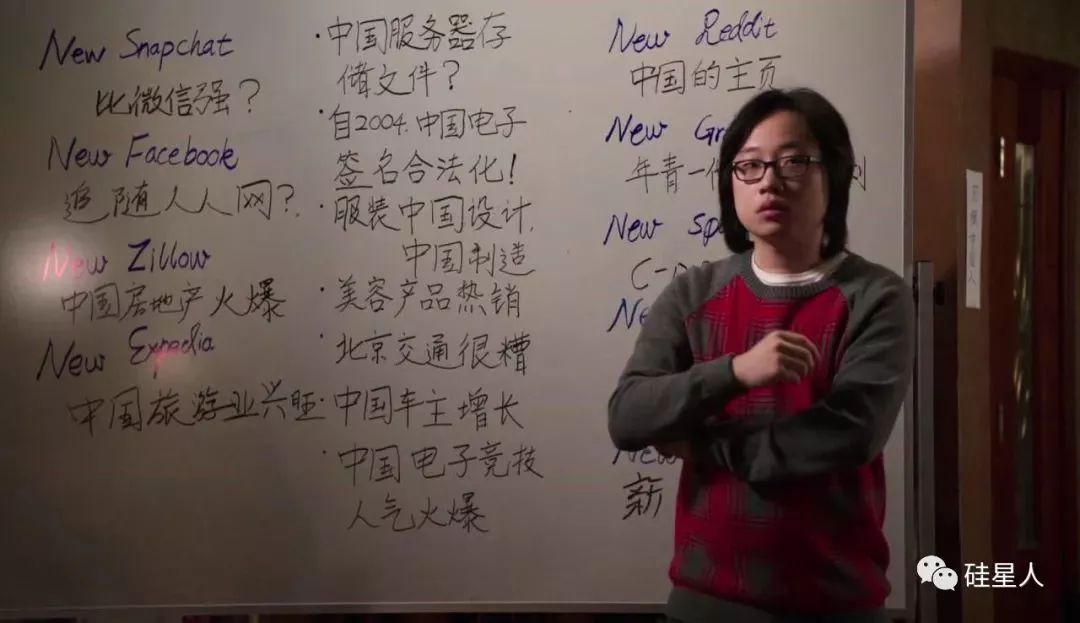 New Snapchat
比微信强?
New Facebook
追随人人网?
New Zillow
中国房地产火爆
New Expedia
中国旅游业兴旺
·中国服务器存
储文件?
·自2004.中国电子
签名合法化!
·服装中国设计,
中国制造
·美容产品热销
·北京交通很糟
·中国车主增长
·中国电子竞技
人气火爆
New Reddit
中国的主页
New
年青一
New
New
新
硅星人